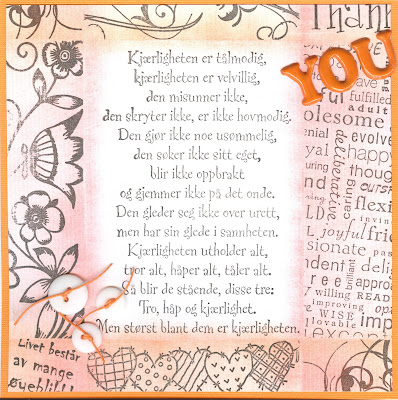 Kjærligheten er tålmodig,
kjærligheten er velvillig,
den misunner ikke,
den skryter ikke, er ikke hovmodig.
Den gjør ikke noe usømmelig,
den søker ikke sitt eget,
blir ikke oppbrakt
og gjemmer ikke på det onde.
Den gleder seg ikke over urett,
men har sin glede i sannheten.
Kjærligheten utholder alt,
tror alt, håper alt, tåler alt.
Så blir de stående, disse tre:
Tro, håp og kjærlighet.
Men størst blant dem er kjærligheten.
Thank
YOU
ful fulfilled
adult
olesome
enial evolve
yal happy
uring though
deliberative
caring
invin
joyful frie
sionate pas
ndent delig
brilliant
ree appro
willing READ
improving
WISE
lovable
Livet består
av mange
øyeblikk!